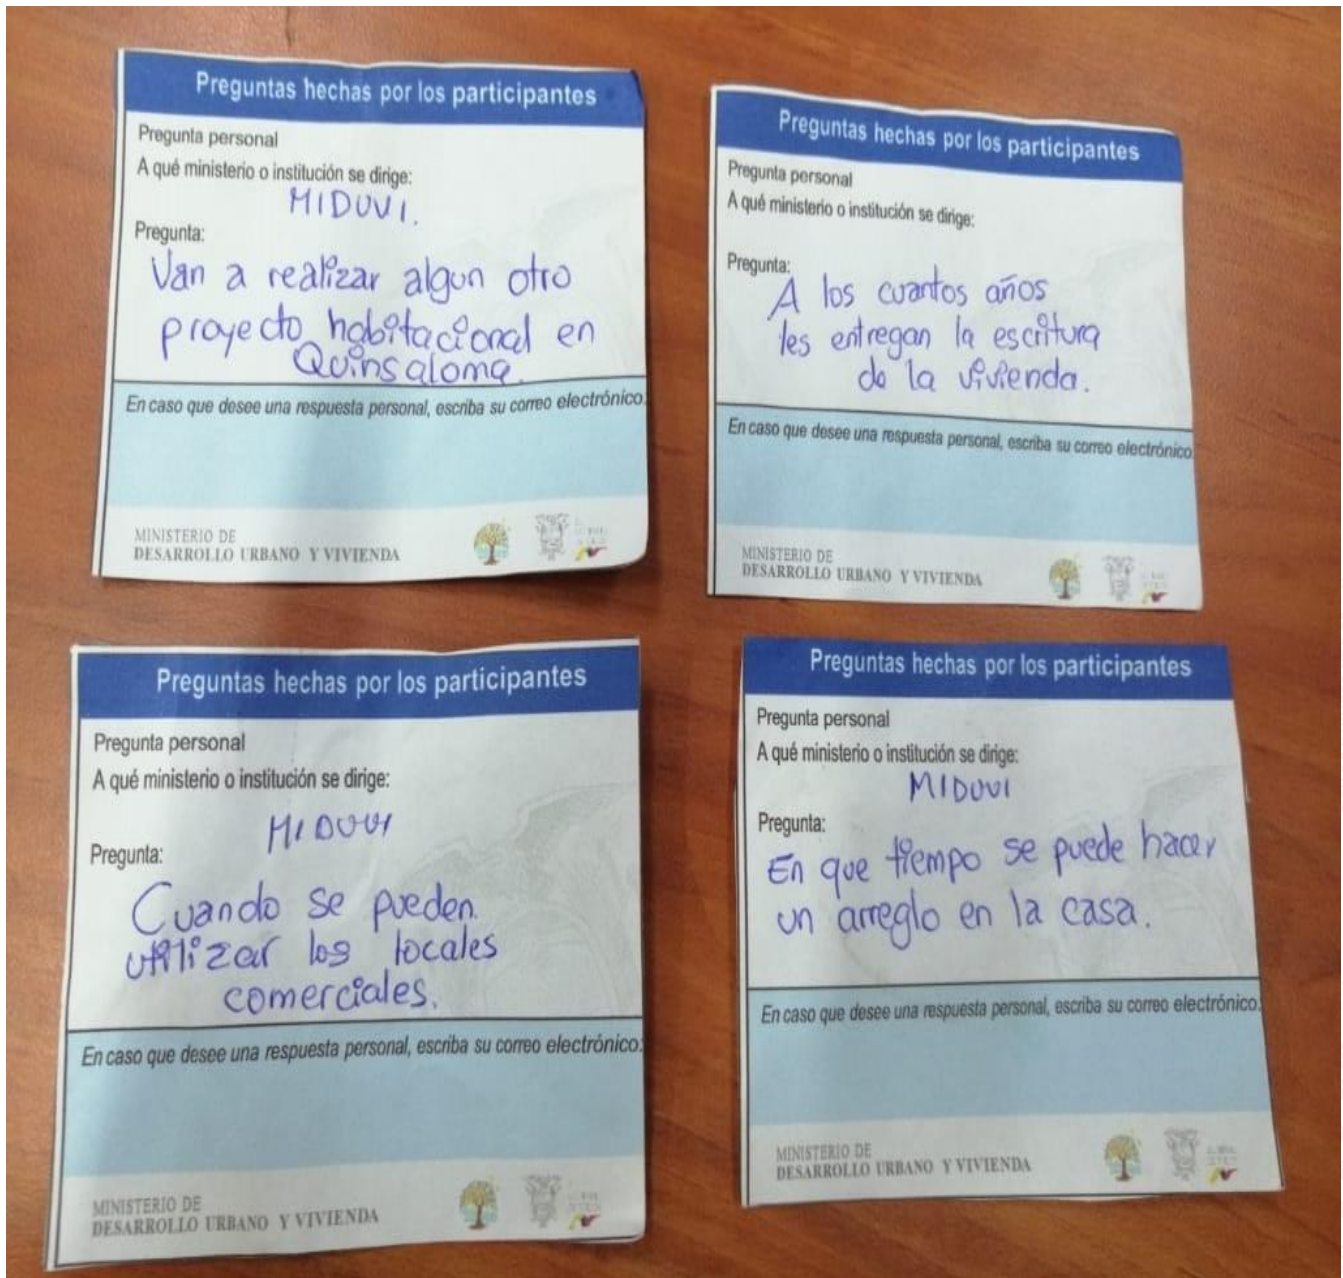 Preguntas hechas por los participantes
Pregunta personal
A qué ministerio o institución se dirige:
MIDUVI.
Pregunta:
Van a realizar algun otro
proyecto habitacional en
Quinsaloma.
En caso que desee una respuesta personal, escriba su correo electrónico.
MINISTERIO DE
DESARROLLO URBANO Y VIVIENDA
Preguntas hechas por los participantes
Pregunta personal
A qué ministerio o institución se dirige:
Pregunta:
A los cuantos años
les entregan la escritura
de la vivienda.
En caso que desee una respuesta personal, escriba su correo electrónico
MINISTERIO DE
DESARROLLO URBANO Y VIVIENDA
Preguntas hechas por los participantes
Pregunta personal
A qué ministerio o institución se dirige:
MIDUVI
Pregunta:
Cuando se pueden
utilizar los locales
comerciales.
En caso que desee una respuesta personal, escriba su correo electrónico:
MINISTERIO DE
DESARROLLO URBANO Y VIVIENDA
Preguntas hechas por los participantes
Pregunta personal
A qué ministerio o institución se dirige:
MIDUVI
Pregunta:
En que tiempo se puede hacer
un arreglo en la casa.
En caso que desee una respuesta personal, escriba su correo electrónico:
MINISTERIO DE
DESARROLLO URBANO Y VIVIENDA